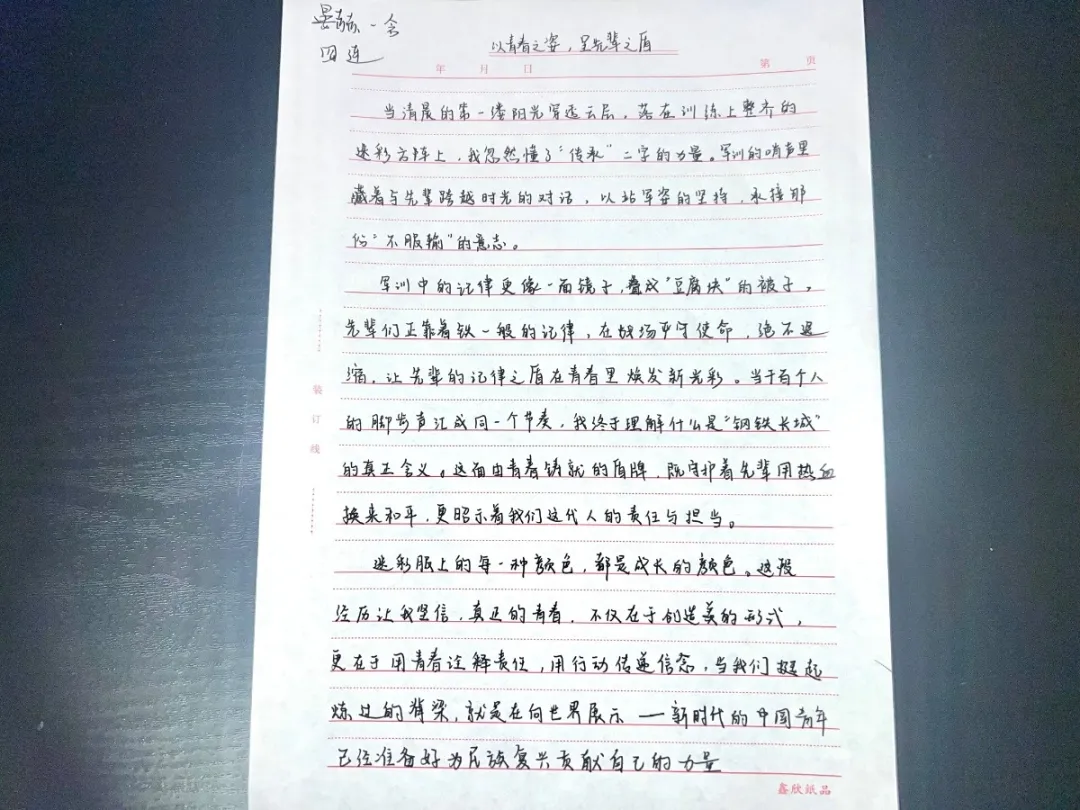 一舍
四连
以青春之姿，呈先辈之盾
年 月 日 第 页
当清晨的第一缕阳光穿透云层，落在训练上整齐的
迷彩方阵上，我忽然懂了“传承”二字的力量。军训的哨声里
藏着与先辈跨越时光的对话，以站军姿的坚持，承接那
份“不服输”的意志。
军训中的记律更像一面镜子，叠成“豆腐块”的被子，
先辈们正靠着铁一般的记律，在战场平守使命，绝不退
缩，让先辈的记律之盾在青春里焕发新光彩。当千百个人
的脚步声汇成同一个节奏，我终于理解什么是“钢铁长城”
的真正含义。这面由青春铸就的盾牌，既守护着先辈用热血
换来和平，更昭示着我们这代人的责任与担当。
迷彩服上的每一种颜色，都是成长的颜色。这段
经历让我坚信，真正的青春，不仅在于创造美的形式，
更在于用青春诠释责任，用行动传递信念，当我们挺起
炼过的脊梁，就是在向世界展示——新时代的中国青年
已经准备好为民族复兴贡献自己的力量
装订线
鑫欣纸品